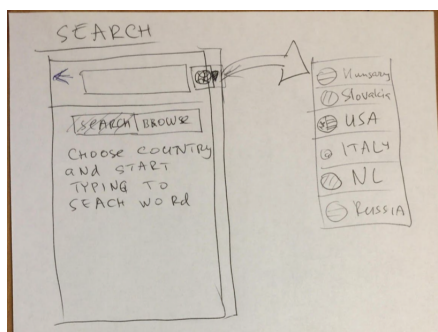 SEARCH
SEARCH BROWSE
CHOOSE COUNTRY
and START
TYPING TO
SEACH WORD
Hungary
Slovakia
USA
ITALY
NL
RUSSIA